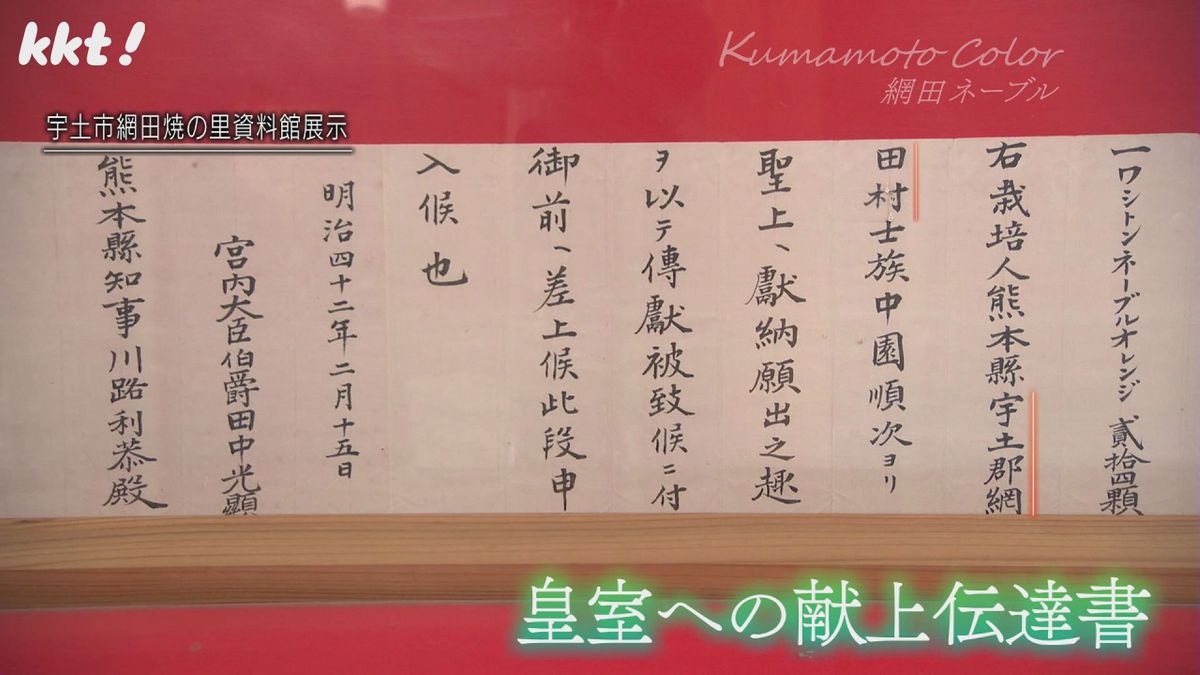 kkt!
Kumamoto Color
網田ネーブル
宇土市網田焼の里資料館展示
一ワシトンネーブルオレンジ 貳拾四顆
右栽培人熊本縣宇土郡網
田村士族中園順次ヨリ
聖上ヘ獻納願出之趣
ヲ以テ傳獻被致候ニ付
御前ヘ差上候此段申
入候也
明治四十二年二月十五日
宮内大臣伯爵田中光顯
熊本縣知事川路利恭殿
皇室への献上伝達書